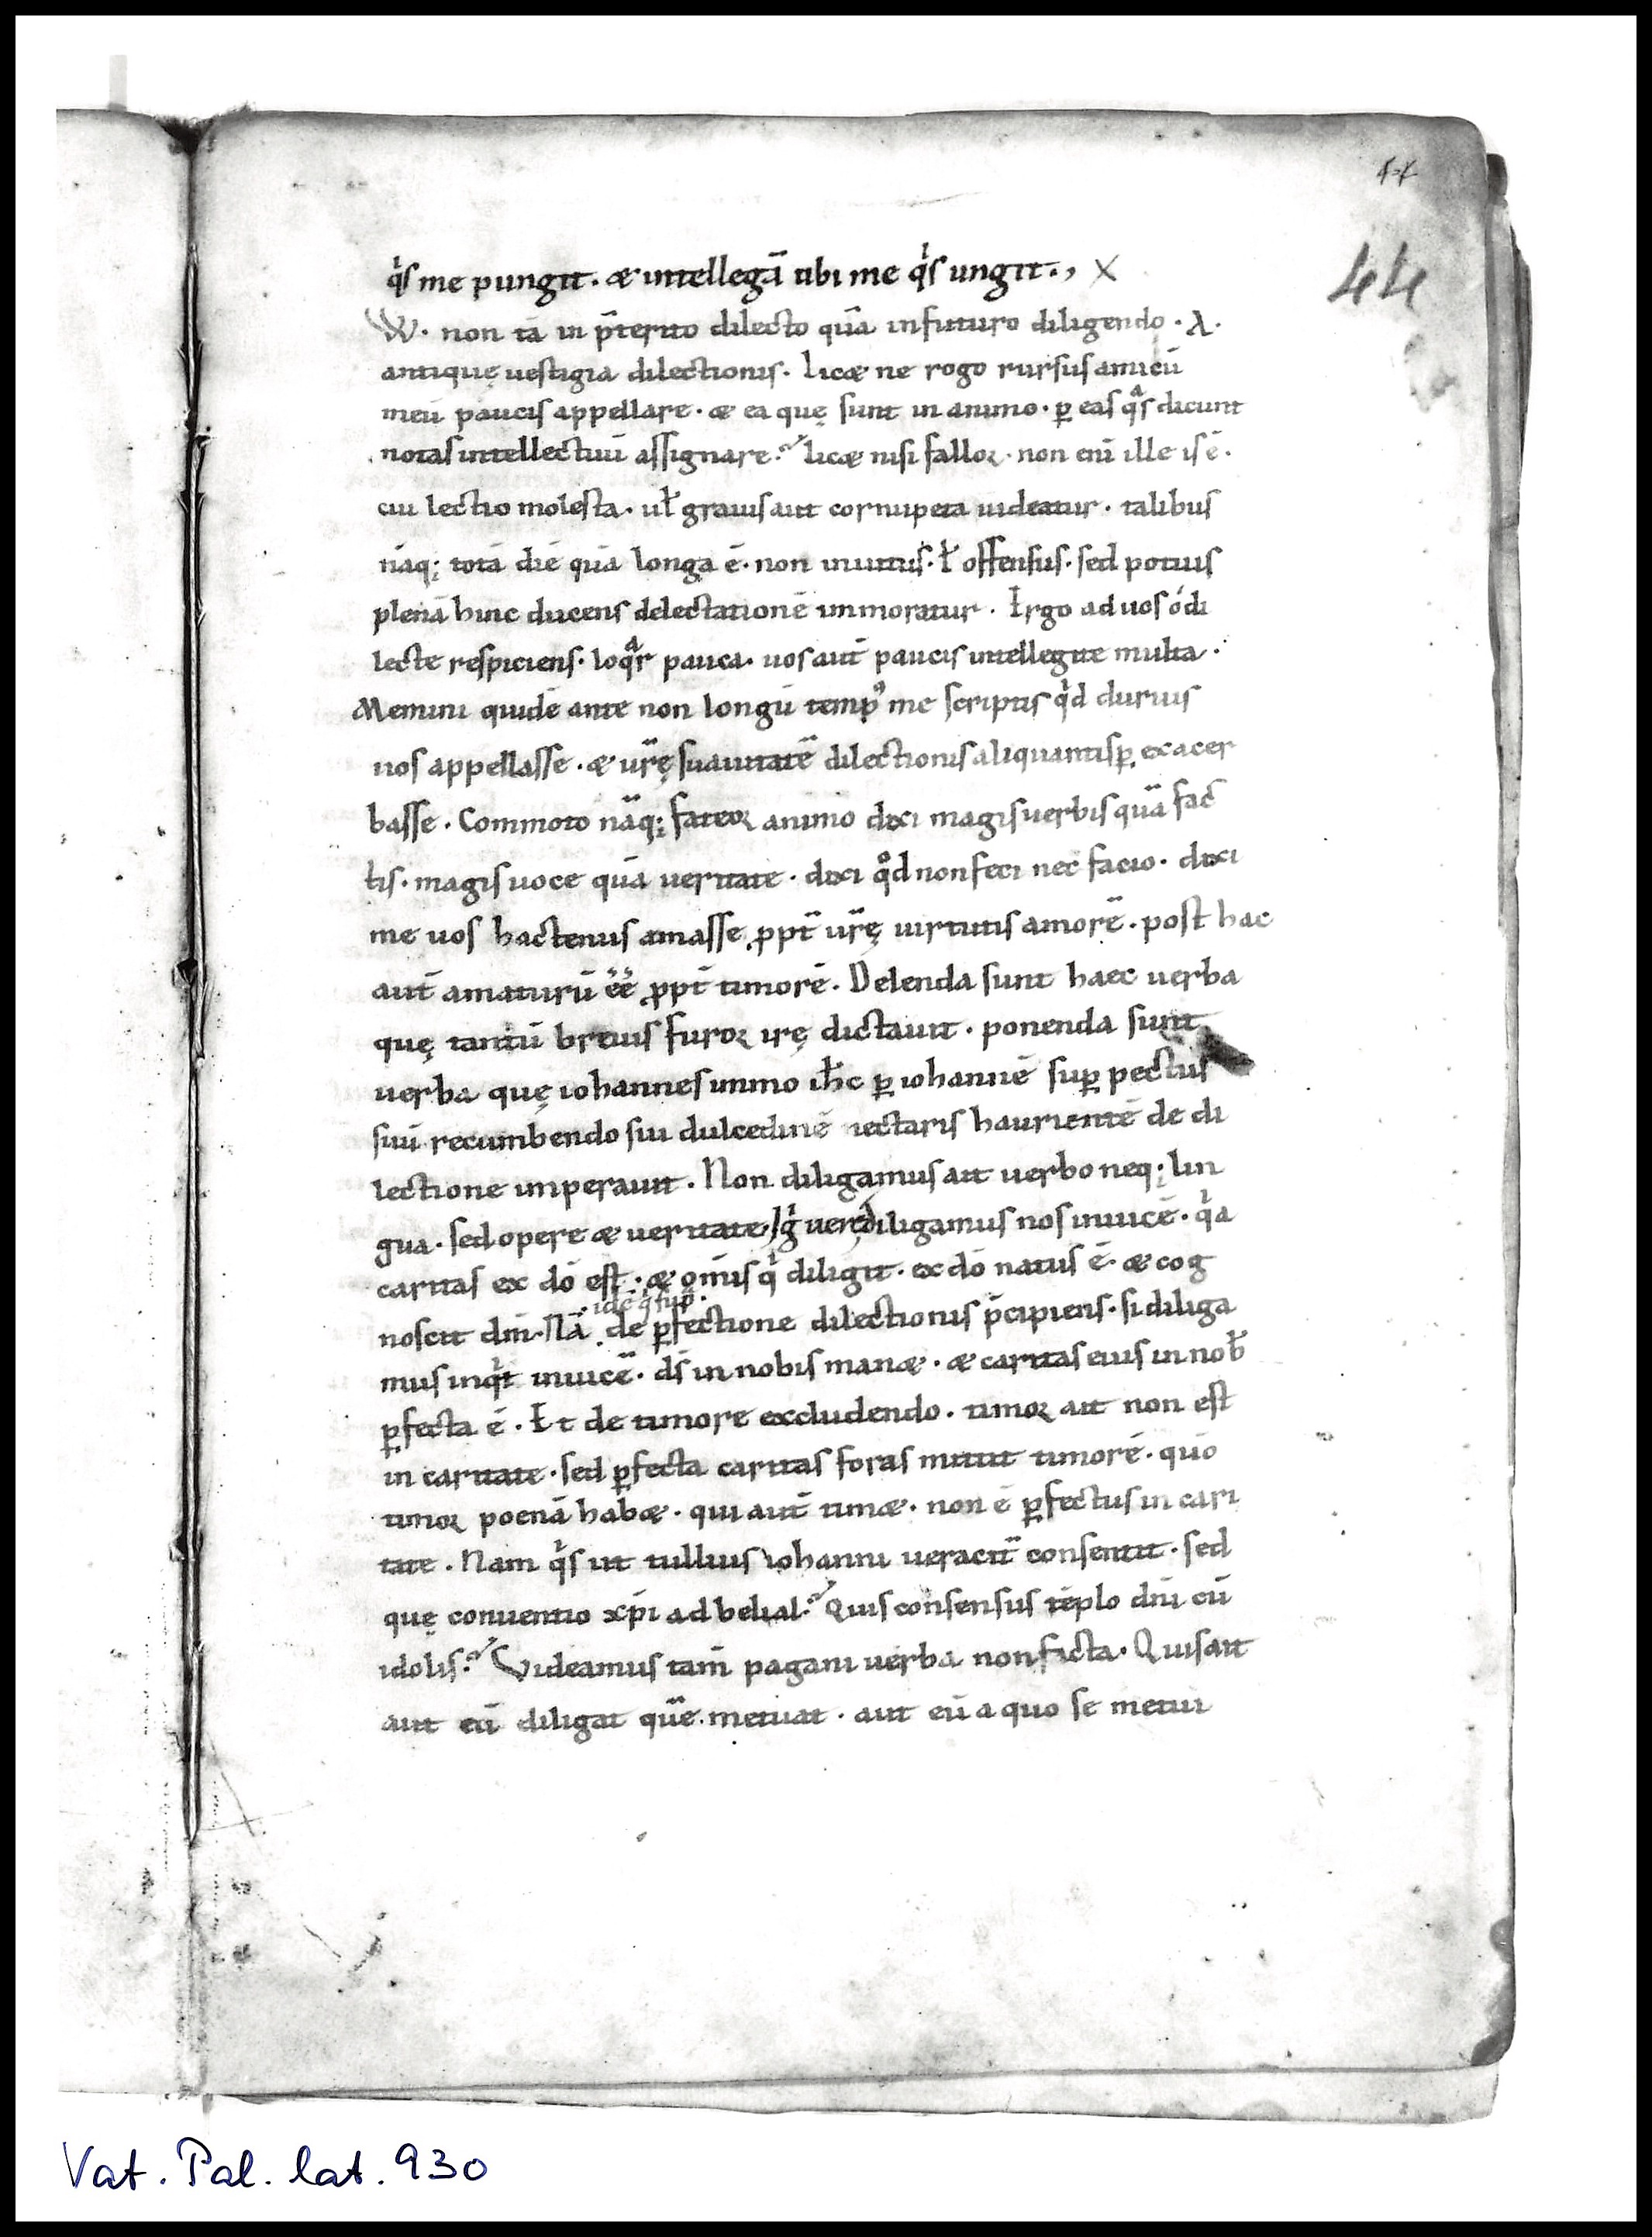 44
44
q̍s me pungit. & intellegā ubi me q̍s ungit., X
W. non tā in p̄terito dilecto quā in futuro diligendo. A.
antiquę uestigia dilectionis. Lic& ne rogo rursus amicū
meū paucis appellare. & ea quę sunt in animo. ꝑ eas qͣs dicunt
notas intellectuū assignare? lic& nisi fallor. non eni ille is ē.
cui lectio molesta. uł grauis aut cornupeta uideatur. talibus
nāq; totā diē quā longa ē. non inuitus. ł offensus. sed potius
plenā hinc ducens delectationē inmoratur. Ergo ad uos ó di
lecte respiciens. loqͣr pauca. uos aut̄ paucis intellegite multa.
Memini quidē ante non longū temp᷒ me scriptis q̍d durius
uos appellasse. & ur̄ę suauitatē dilectionis aliquantisꝑ exacer
basse. Commoto nāq; fateor animo dixi magis uerbis quā fac
tis. magis uoce quā ueritate. dixi qͦd non feci nec facio. dixi
me uos hactenus amasse ꝓpt̄ ur̄ę uirtutis amorē. post hac
aut̄ amaturū éé ꝓpt̄ timorē. Delenda sunt haec uerba
quę tantū breuis furor irę dictauit. ponenda sunt
uerba quę iohannes immo ih̄c ꝑ iohannē suꝑ pectus
suū recumbendo sui dulcedinē nectaris haurientē de di
lectione imperauit. Non diligamus ait uerbo neq; lin
gua. sed opere & ueritate. Ig̍ diligamus nos inuicē. q̍a
caritas ex dō est. & om̄is q̍ diligit. ex dō natus ē. & cog
. idē q̍ sup̄.
noscit dm̄. Nā de ꝑfectione dilectionis p̄cipiens. si diliga
mus inq̍t inuicē. ds̄ in nobis man&. & caritas eius in nob̄
ꝑfecta ē. Et de timore excludendo. timor ait non est
in caritate. sed ꝑfecta caritas foras mittit timorē. quō
timor poenā hab&. qui aut̄ tim&. non ē ꝑfectus in cari
tate. Nam q̍s ut tullius iohanni ueracit̄ consentit. sed
quę conuentio xp̄i ad belial? Quis consensus tēplo dn̄i cū
idolis? Videamus tam̄ pagani uerba non ficta. Quis ait
aut eū diligat quē metuat. aut eū a quo se metui
Vat. Pal. lat. 930